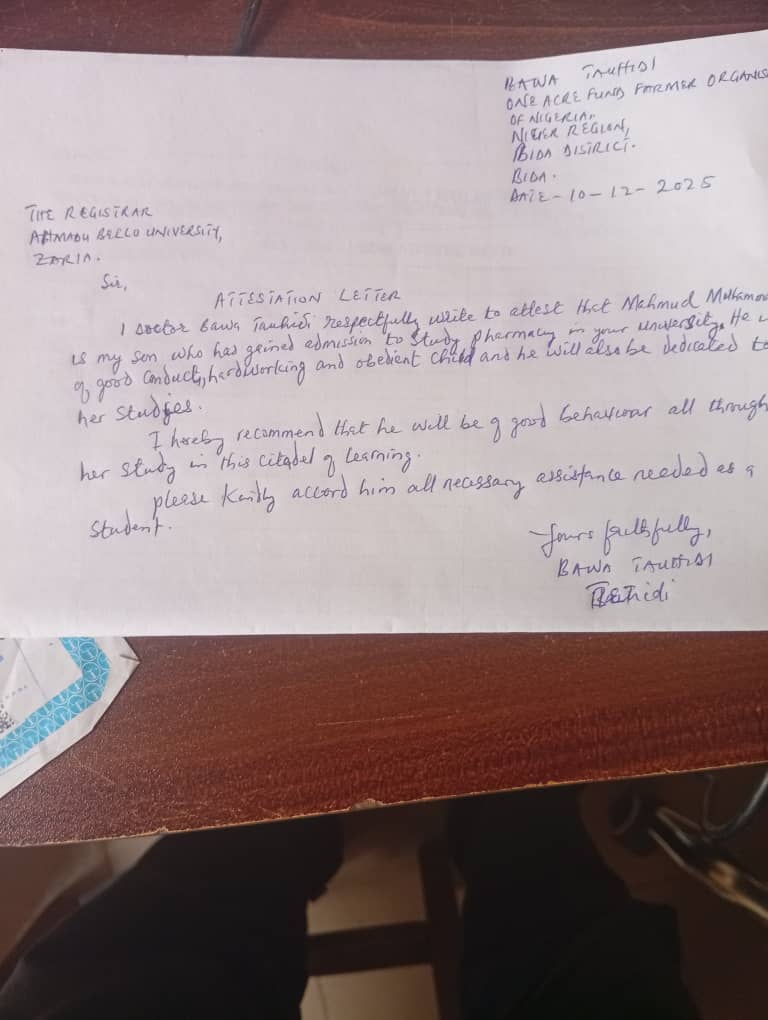 BAWA TAUHIDI
ONE ACRE FUND FARMER ORGANIS
OF NIGERIA,
NIGER REGION,
BIDA DISTRICT.
BIDA.
DATE - 10 - 12 - 2025
THE REGISTRAR
AHMADU BELLO UNIVERSITY,
ZARIA.
Sir,
ATTESTATION LETTER
I Doctor Bawa Tauhidi respectfully write to attest that Mahmud Muhammad
is my son who has gained admission to study pharmacy in your university. He
of good conduct, hardworking and obedient child and he will also be dedicated to
her studies.
I hereby recommend that he will be of good behaviour all through
her study in this citadel of learning.
please kindly accord him all necessary assistance needed as a
student.
Yours faithfully,
BAWA TAUHIDI